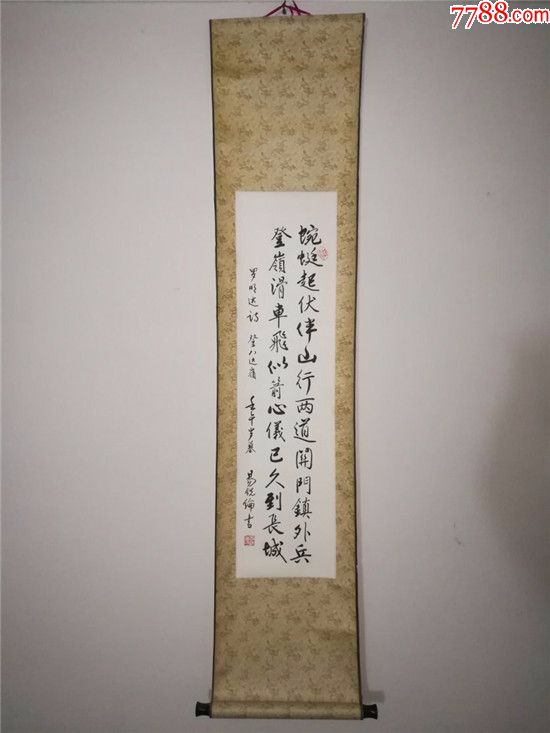 7788.com
蜿蜒起伏伴山行两道關門鎮外兵
登嶺滑車飛似箭心儀已久到長城
罗明达詩 登八达嶺 壬午岁暮 易倪倫書